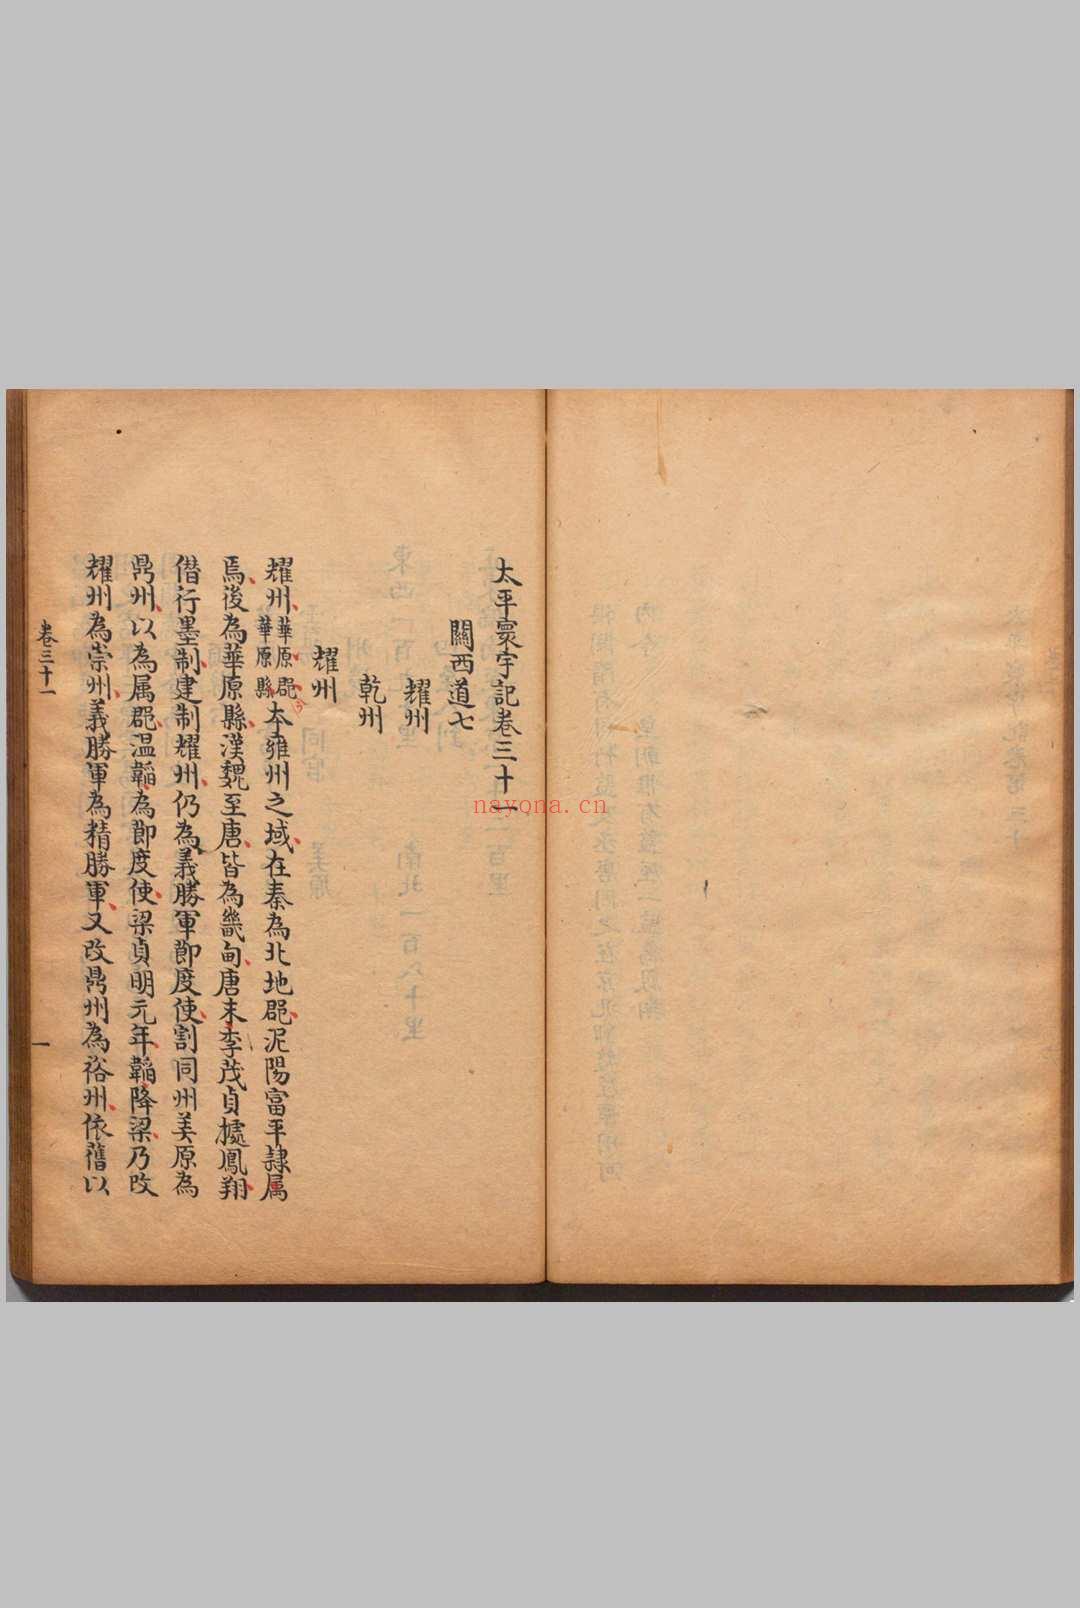 太平寰宇記卷三十一
關西道七
耀州
乾州
耀州
耀州華原郡華原縣本雍州之域在秦為北地郡泥陽富平隷属
焉後為華原縣漢魏至唐皆為畿甸唐末李茂貞據鳳翔
僣行墨制建制耀州仍為義勝軍節度使割同州美原為
鼎州以為属郡温韜為節度使梁貞明元年韜降梁乃改
耀州為崇州義勝軍為精勝軍又改鼎州為裕州依舊以
卷三十一
一
nayona.cn